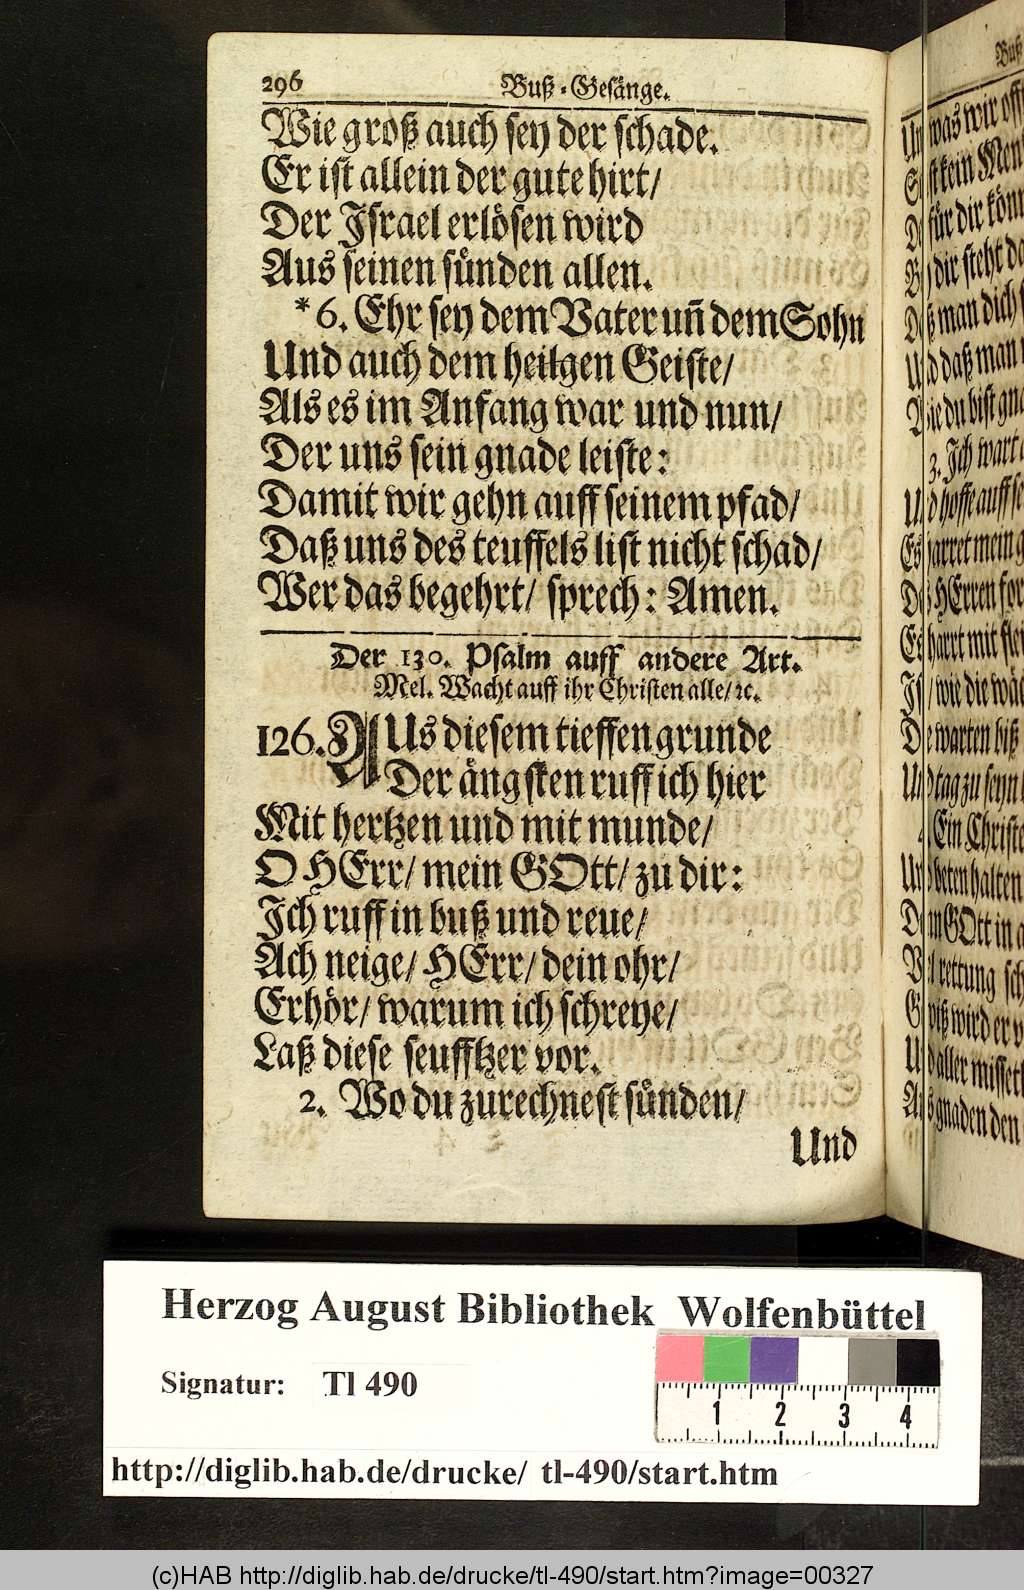 296 Buß-Gesänge.
Wie groß auch sey der schade.
Er ist allein der gute hirt/
Der Israel erlösen wird
Aus seinen sünden allen.
*6. Ehr sey dem Vater uñ dem Sohn
Und auch dem heilgen Geiste/
Als es im Anfang war und nun/
Der uns sein gnade leiste:
Damit wir gehn auff seinem pfad/
Daß uns des teuffels list nicht schad/
Wer das begehrt/ sprech: Amen.
Der 130. Psalm auff andere Art.
Mel. Wacht auff ihr Christen alle/ ꝛc.
126. AUs diesem tieffen grunde
Der ängsten ruff ich hier
Mit hertzen und mit munde/
O HErr/ mein GOtt/ zu dir:
Ich ruff in buß und reue/
Ach neige/ HErr/ dein ohr/
Erhör/ warum ich schreye/
Laß diese seufftzer vor.
2. Wo du zurechnest sünden/
Und
Buß
was wir
kein
für dir
dir steht
man dich
daß man
du bist
3. Ich wart
hoffe auff
mein
HErren
harrt mit
wie die
warten biß
tag zu seyn
Ein
beten halten
GOtt in
rettung
wird er
aller
gnaden den
Herzog August Bibliothek Wolfenbüttel
Signatur: Tl 490
1 2 3 4
http://diglib.hab.de/drucke/ tl-490/start.htm
(c)HAB http://diglib.hab.de/drucke/tl-490/start.htm?image=00327